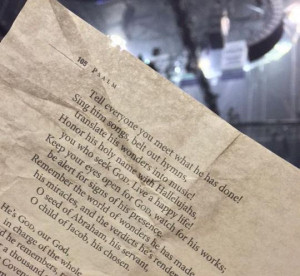 105 PSALM
Tell everyone you meet what he has done!
Sing him songs, belt out hymns,
translate his wonders into music!
Honor his holy name with Hallelujahs,
you who seek GOD. Live a happy life!
Keep your eyes open for GOD, watch for his works;
be alert for signs of his presence.
Remember the world of wonders he has made,
his miracles, and the verdicts he's rendered
O seed of Abraham, his servant,
O child of Jacob, his chosen.
He's GOD, our God,
in charge of the whole
he remembers,
a thousand